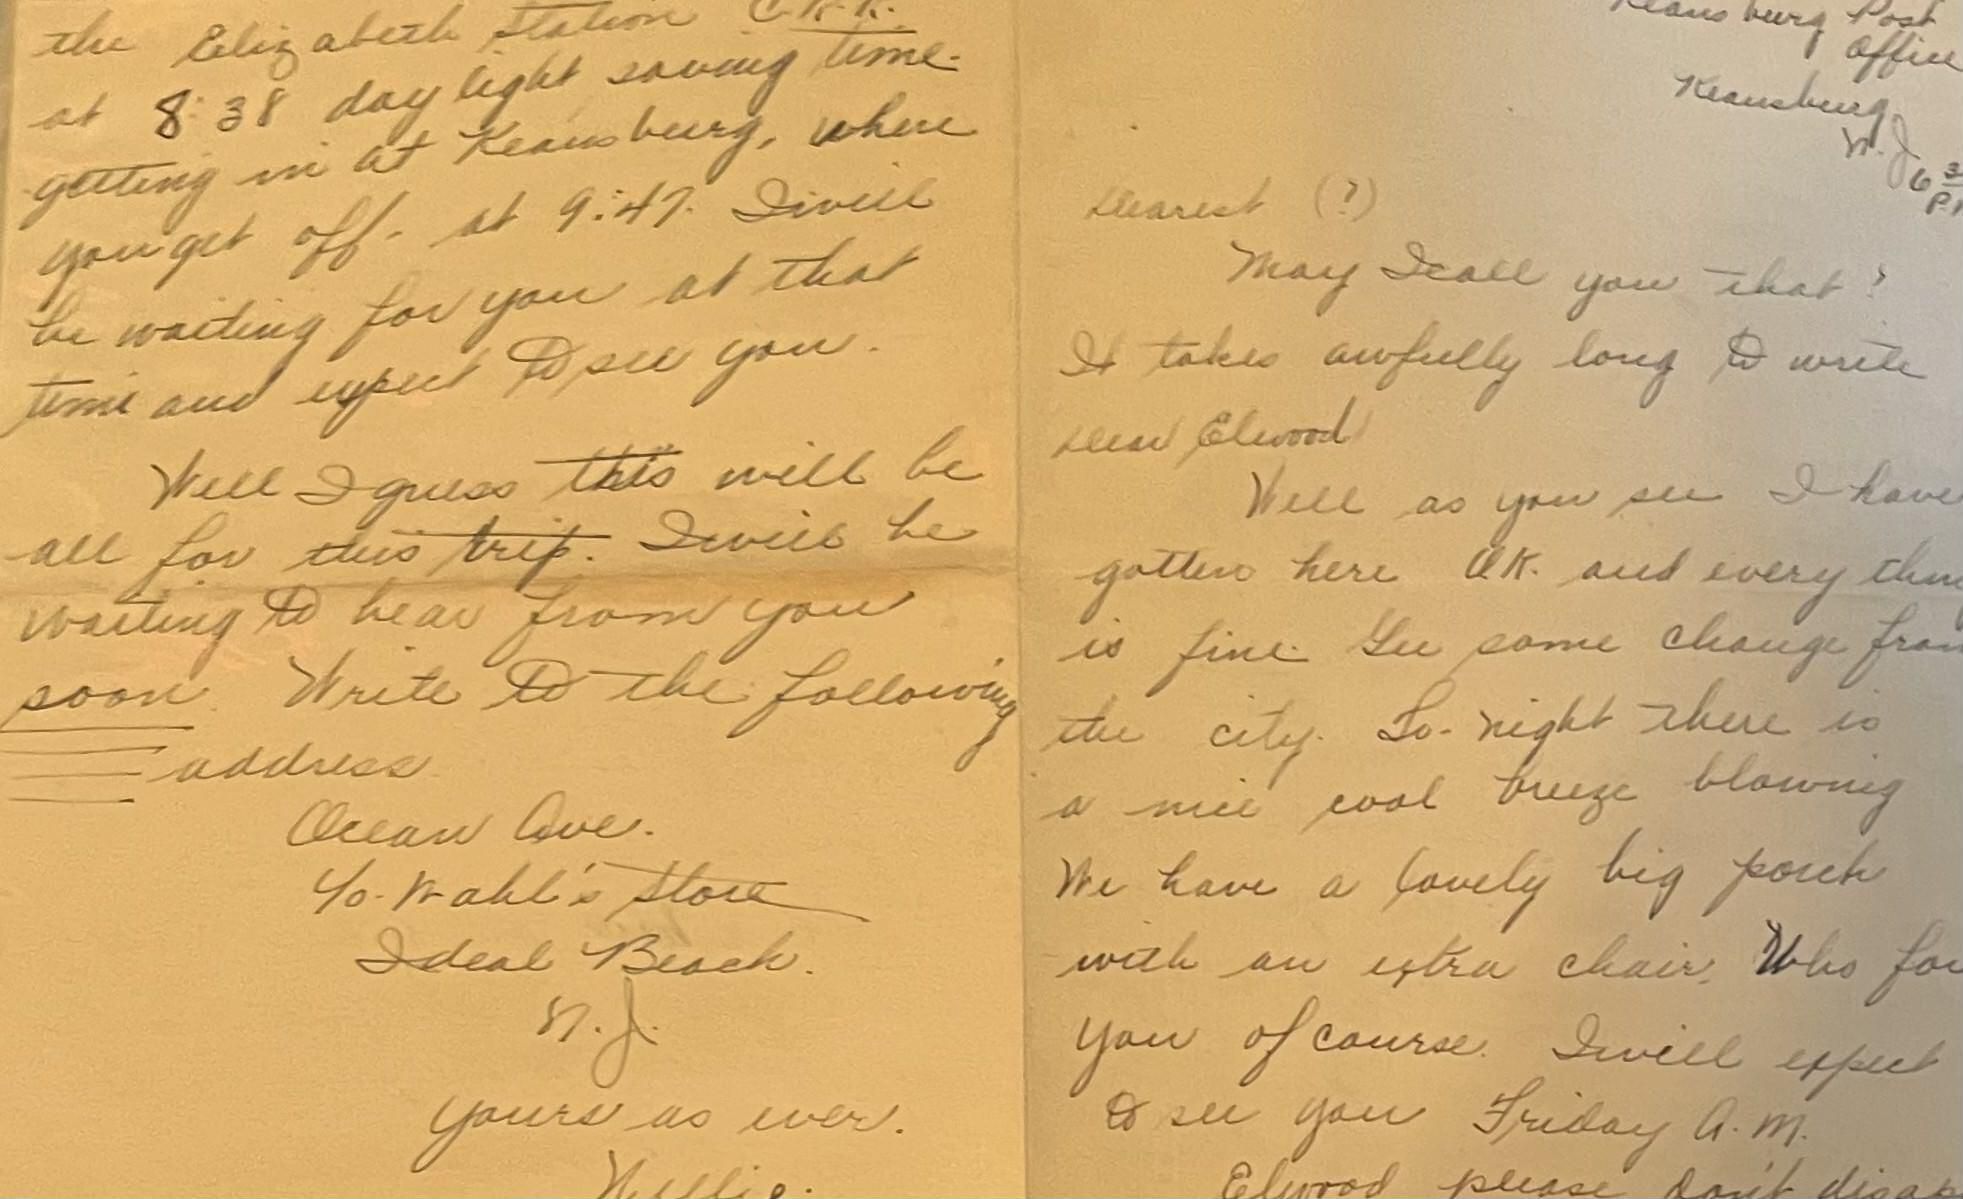 the Elizabeth Station C.R.R.
at 8:38 day light saving time.
getting in at Keansburg, where
you get off. at 9:47. I will
be waiting for you at that
time and expect to see you.
Well I guess this will be
all for this trip. I will be
waiting to hear from you
soon. Write to the following
address
Ocean Ave.
c/o Wahl's Store
Ideal Beach.
N.J.
Yours as ever.
Nellie.
Keansburg Post
Office
Keansburg
N.J.
6 3
P.
Dearest (?)
May I call you that?
It takes awfully long to write
Dear Elwood
Well as you see I have
gotten here O.K. and every thin
is fine. Gee some change from
the city. To-night there is
a nice cool breeze blowing
We have a lovely big porch
with an extra chair. Who for
you of course. I will expect
to see you Friday A.M.
Elwood please don't disap